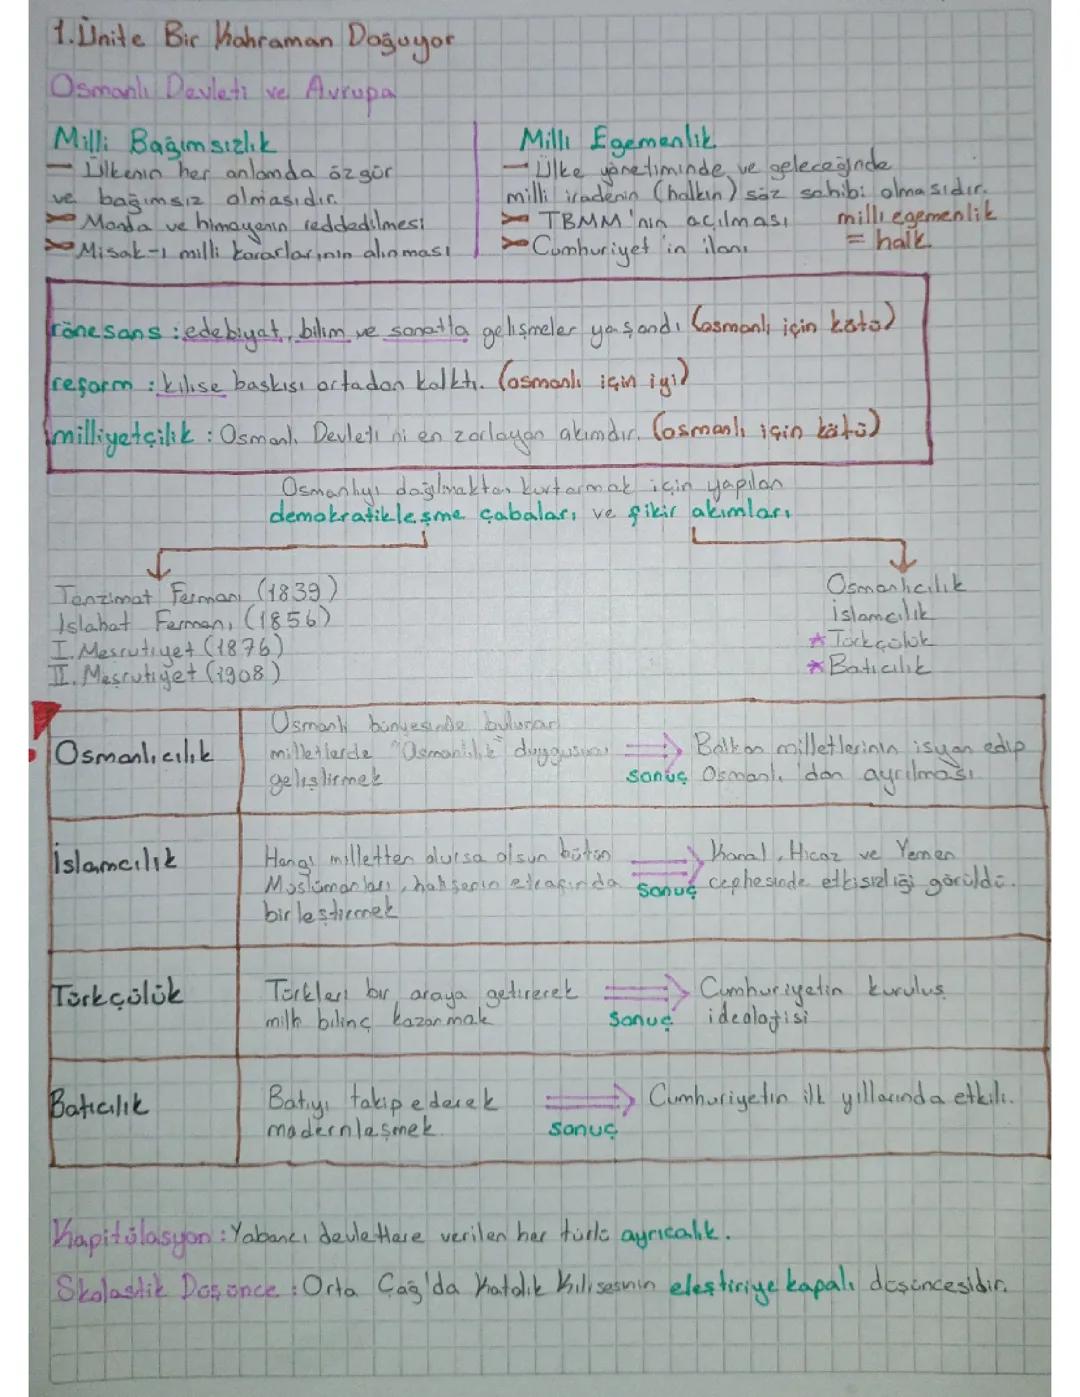 1. Ünite Bir Kahraman Doğuyor
Osmanlı Devleti ve Avrupa
Milli Bağımsızlık
— Ülkenin her anlamda özgür
ve bağımsız olmasıdır.
➤ Manda ve himayenin reddedilmesi
➤ Misak-ı milli kararlarının alınması
Milli Egemenlik
— Ülke yönetiminde ve geleceğinde
milli iradenin (halkın) söz sahibi olmasıdır.
➤ TBMM'nin açılması
➤ Cumhuriyet'in ilanı
milli egemenlik
= halk
rönesans : edebiyat, bilim ve sanatta gelişmeler yaşandı (osmanlı için kötü)
reform : kilise baskısı ortadan kalktı. (osmanlı için iyi)
milliyetçilik : Osmanlı Devleti'ni en zorlayan akımdır. (osmanlı için kötü)
Osmanlıyı dağılmaktan kurtarmak için yapılan
demokratikleşme çabaları ve fikir akımları
Tanzimat Fermanı (1839)
Islahat Fermanı (1856)
I. Meşrutiyet (1876)
II. Meşrutiyet (1908)
Osmanlıcılık
İslamcılık
★ Türkçülük
★ Batıcılık
Osmanlıcılık
Osmanlı bünyesinde bulunan
milletlerde "Osmanlılık" duygusunu
geliştirmek
sonuç
Balkan milletlerinin isyan edip
Osmanlı'dan ayrılması
İslamcılık
Hangi milletten olursa olsun bütün
Müslümanları, halifenin etrafında
birleştirmek
sonuç
Kanal, Hicaz ve Yemen
cephesinde etkisizliği görüldü.
Türkçülük
Türkleri bir araya getirerek
milli bilinç kazanmak
sonuç
Cumhuriyetin kuruluş
ideolojisi
Batıcılık
Batıyı takip ederek
modernleşmek.
sonuç
Cumhuriyetin ilk yıllarında etkili.
Kapitülasyon : Yabancı devletlere verilen her türlü ayrıcalık.
Skolastik Düşünce : Orta Çağ'da Katolik Kilisesinin eleştiriye kapalı düşüncesidir.